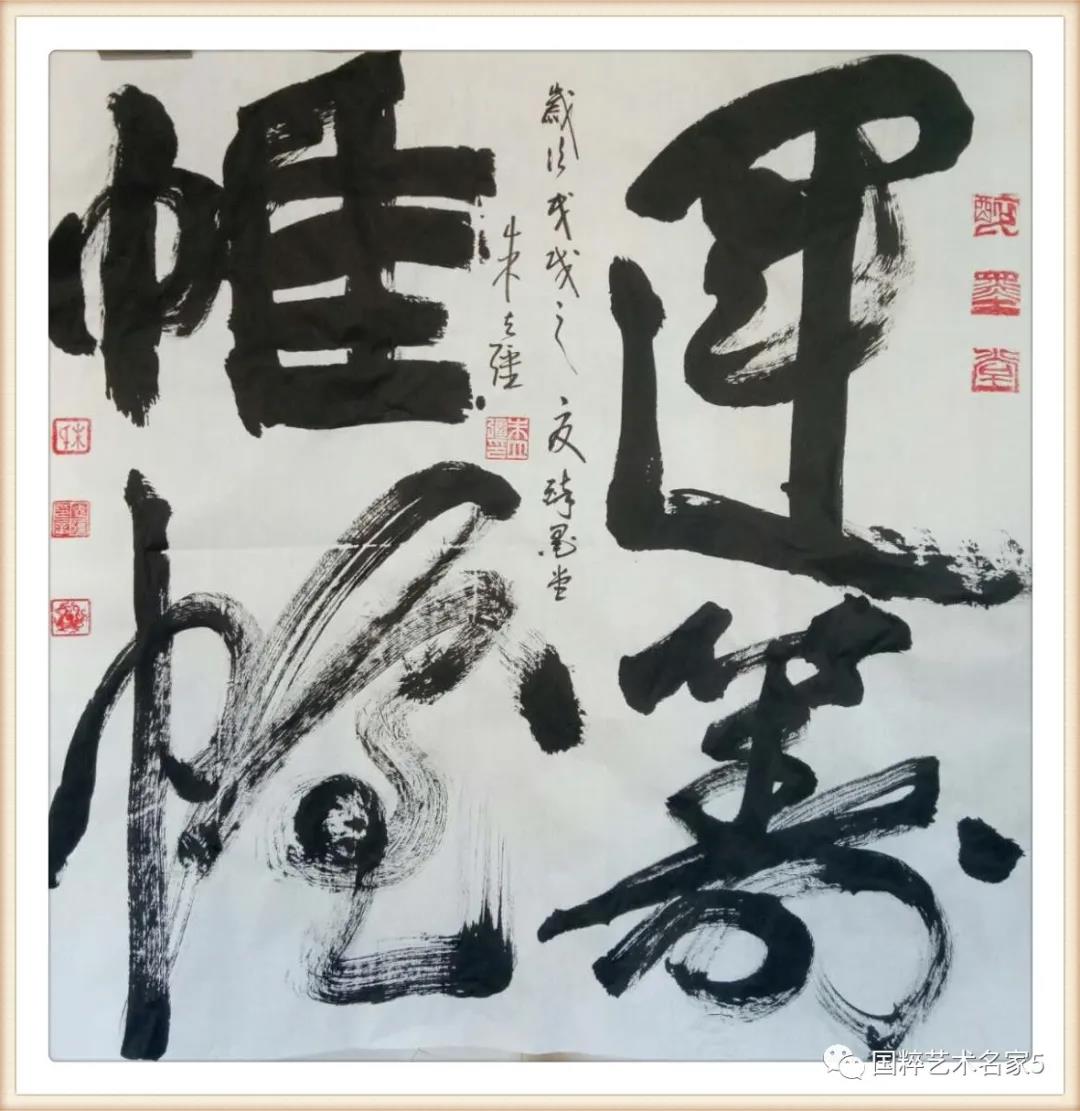 醉墨堂
運筹
帷幄
歲次戊戌之夏醉墨堂
朱
国粹艺术名家5